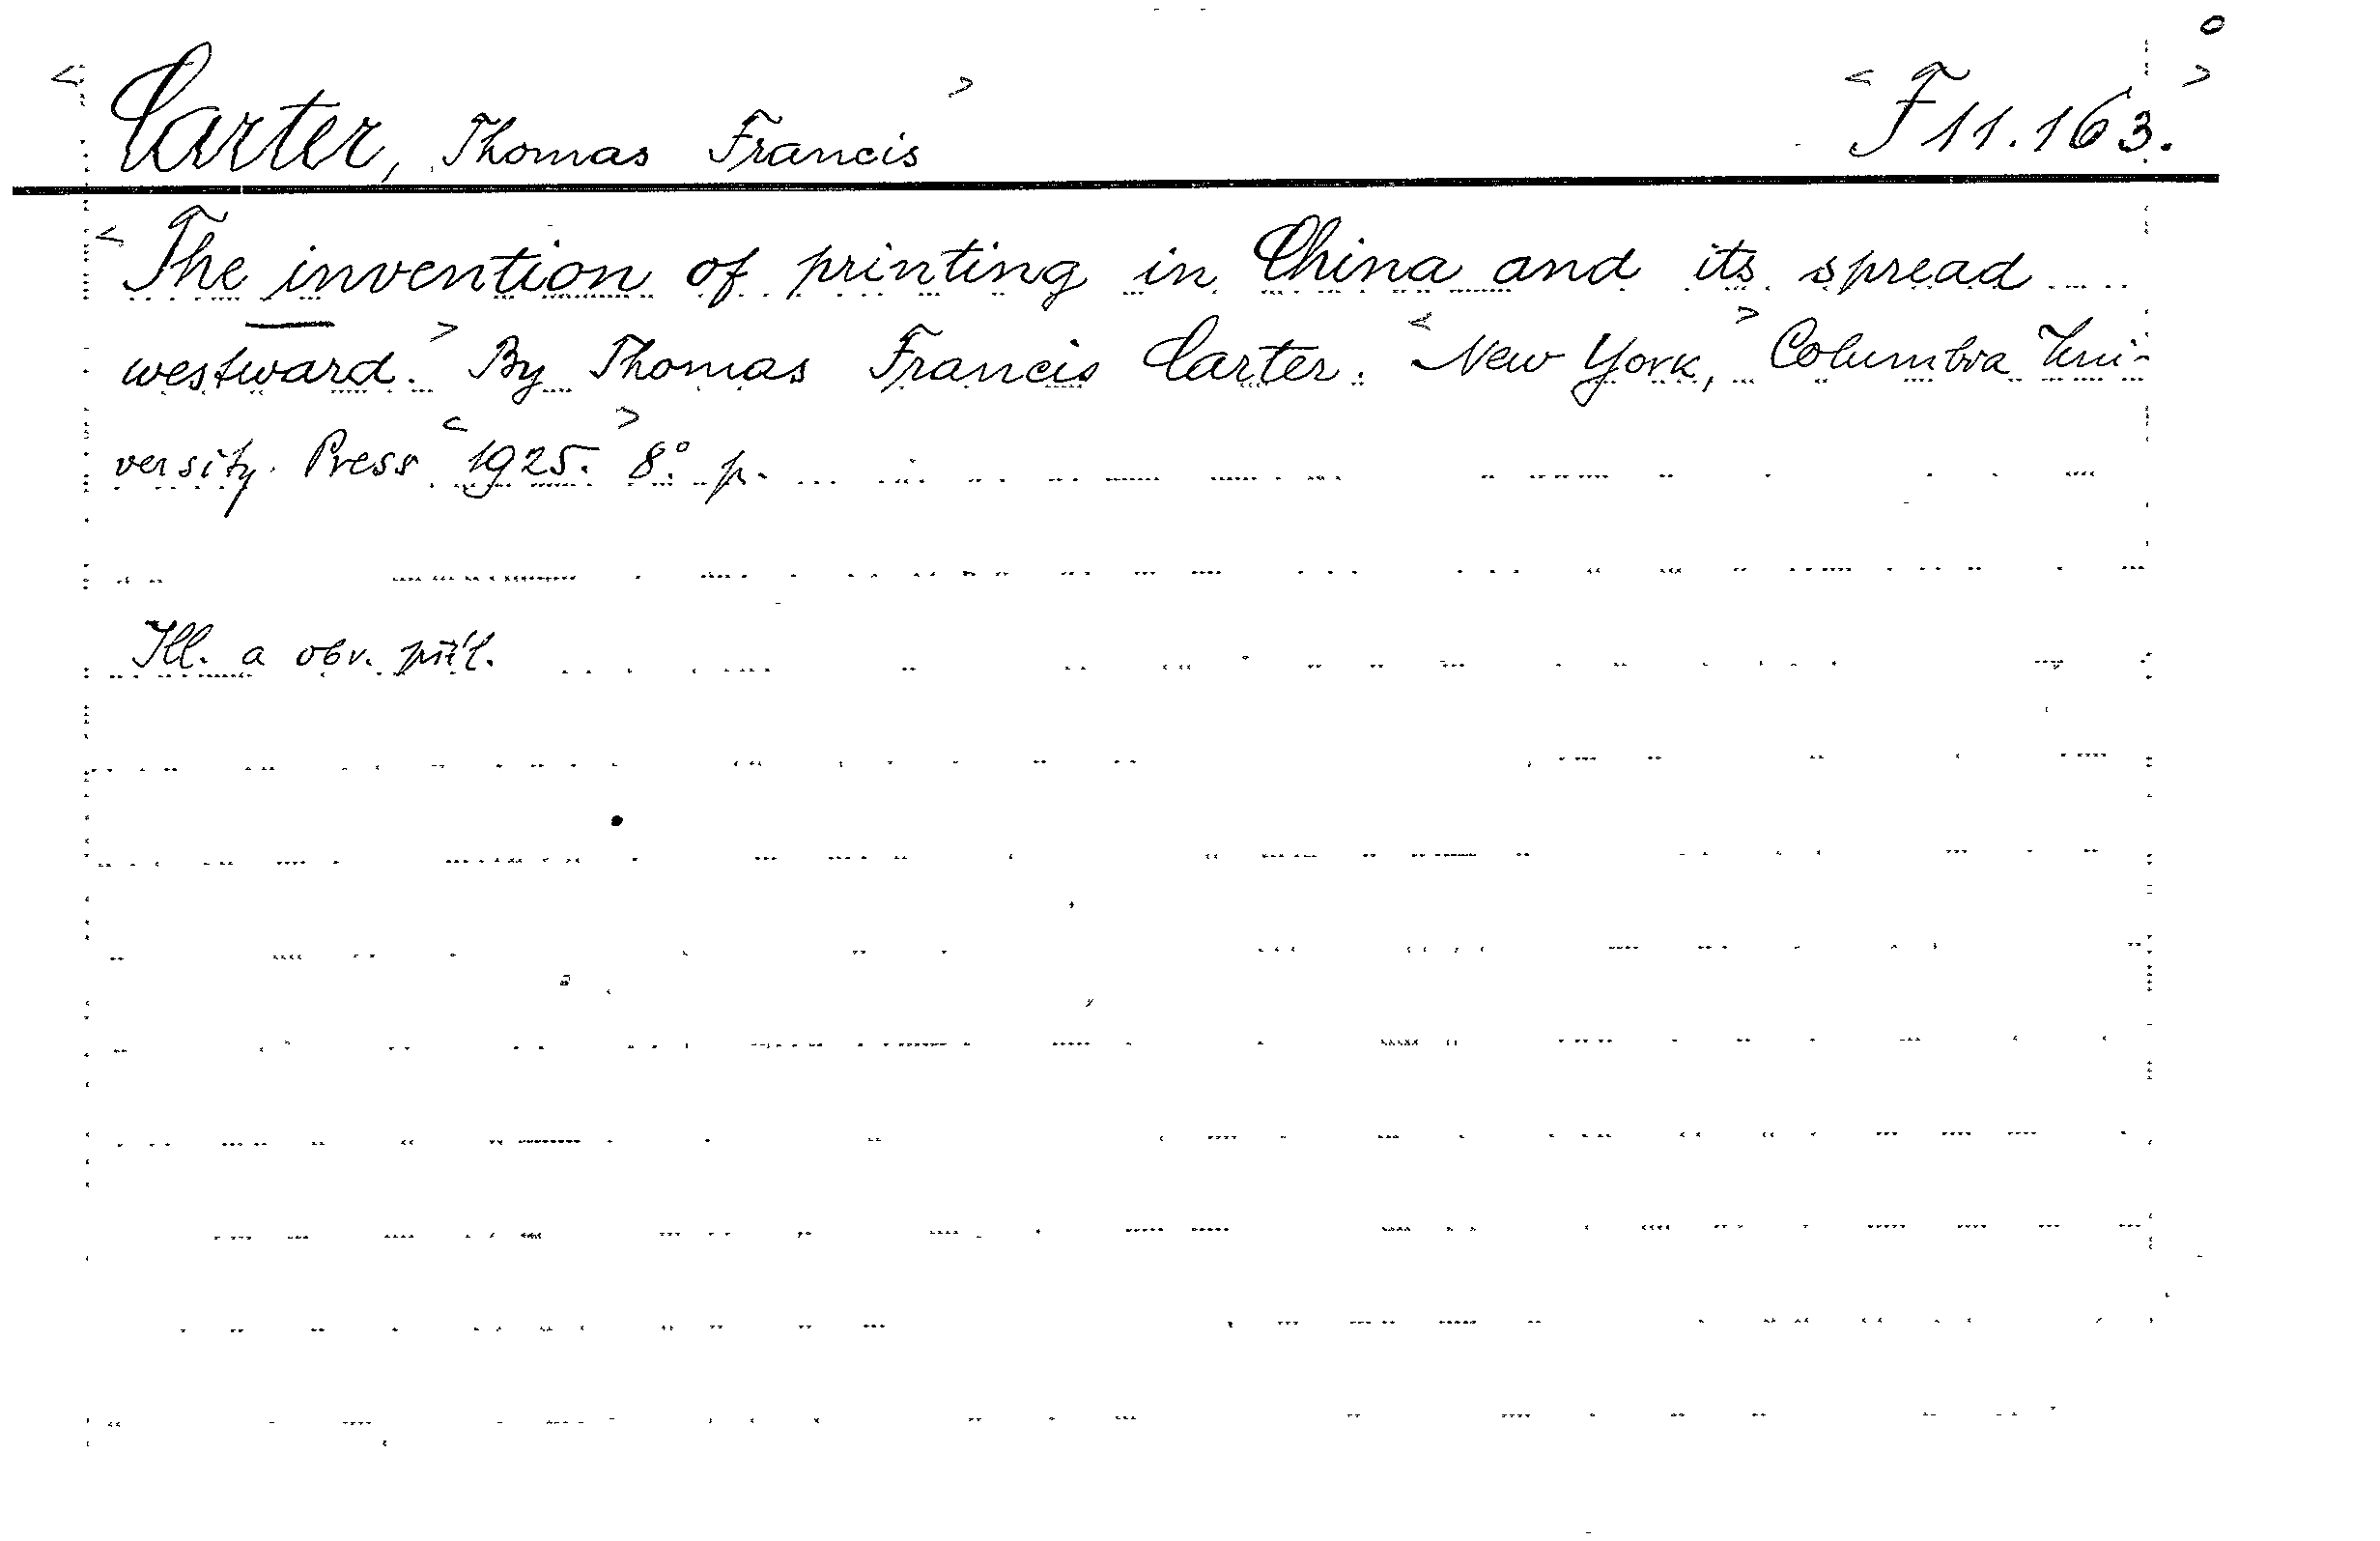 <Carter, Thomas Francis> <F 11.163.>
<The invention of printing in China and its spread
westward.> By Thomas Francis Carter. <New York,> Columbia Uni-
versity Press <1925.> 8° p.
Ill. a obr. příl.